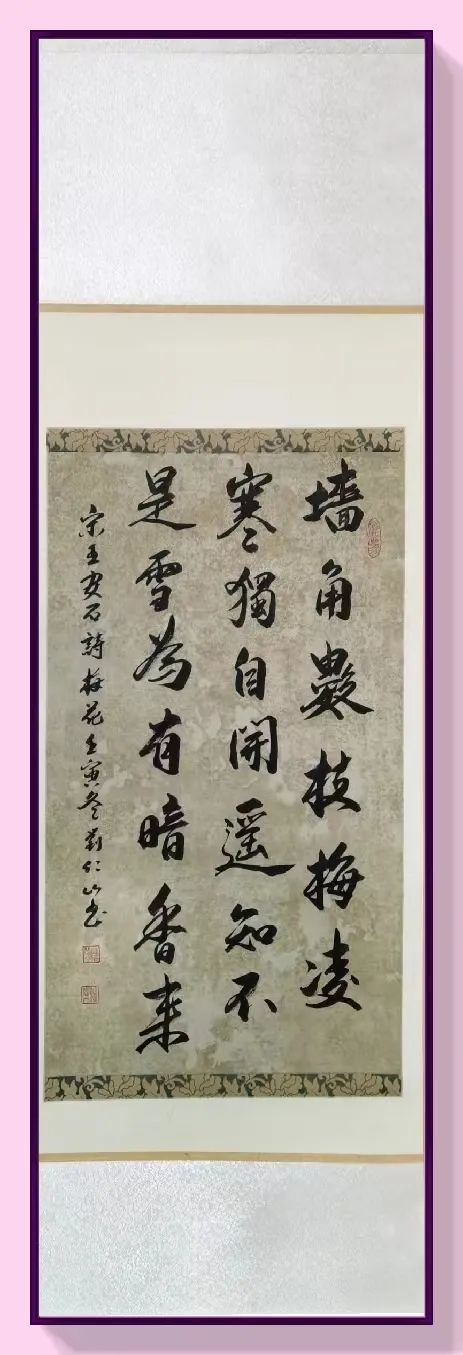 墙角數枝梅凌
寒獨自開遥知不
是雪為有暗香来
宋王安石詩梅花壬寅冬刘仁山书